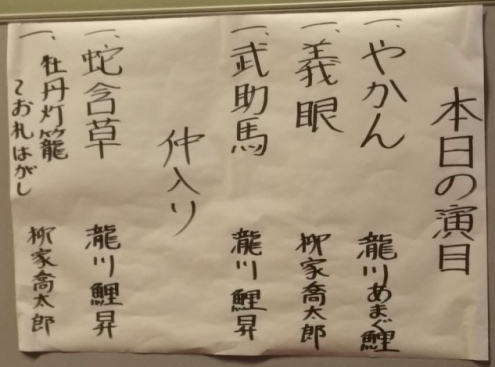 本日の演目
一、やかん 瀧川あまぐ鯉
一、義眼 柳家喬太郎
一、武助馬 瀧川鯉昇
仲入り
一、蛇含草 瀧川鯉昇
一、牡丹灯籠 柳家喬太郎
〜お札はがし